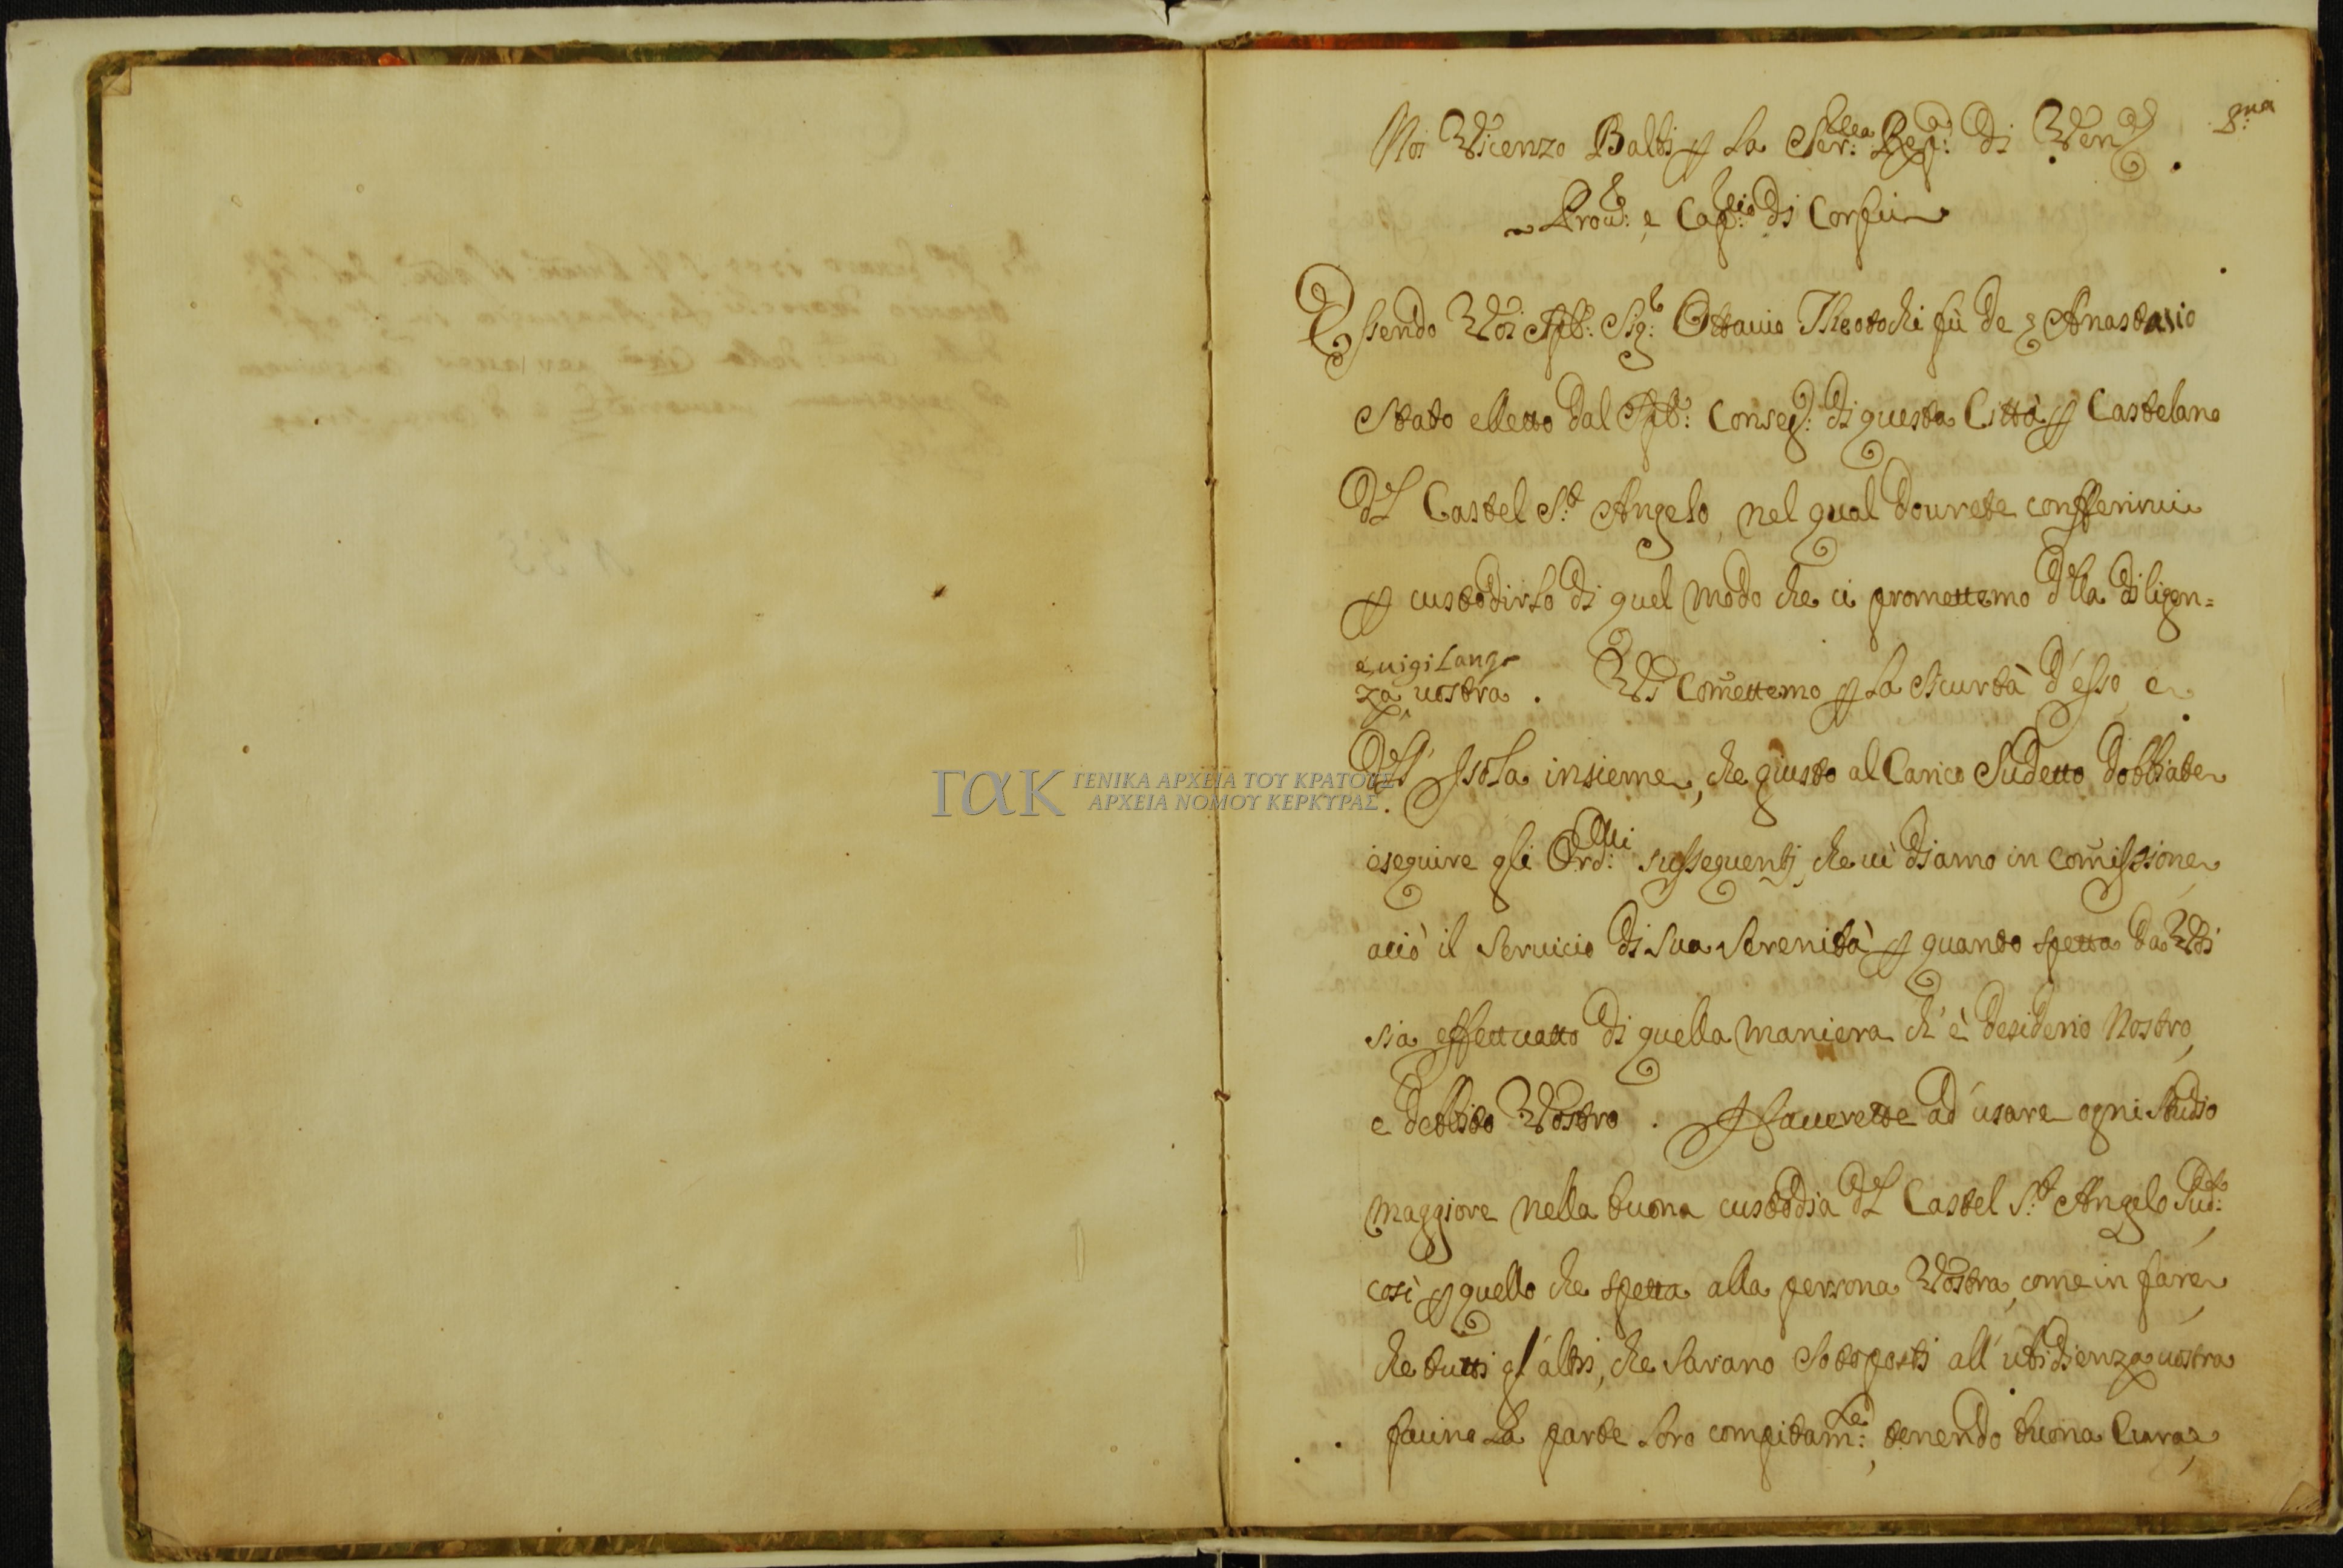 pma
Noi Vicenzo Balbi per la Ser:ma Rep:ca di Ven:a
Prou:r e Cap:nio di Corfù
Essendo Voi Sp: Sig:r Ottauio Theotochi fù de s Anastasio
Stato elletto dal Sp: Conseg: di questa Città per Castelano
del Castel S:t Angelo, nel qual dourete confferirui
per custodirlo di quel modo che ci promettemo della diligen=
e uigilanz
za uostra. Vi comettemo per la sicurtà d'esso, e
dell'Isola insieme, che giusto al Carico sudetto dobbiate
eseguire gli Ord:ni susseguenti, che ui diamo in comissione
acciò il seruicio di sua Serenità per quanto spetta da Voi
sia effettuatto di quella maniera ch'è desiderio Nostro,
e debbito Vostro. Hauerette ad usare ogni studio
maggiore nella buona custodia del Castel S:t Angelo sud:to,
così per quello che spetta alla persona Vostra, come in fare,
che tutti gl'altri, che sarano sotoposti all'ubidienza uostra
facino la parte loro compitam:te, tenendo buona cura,
ΓΑΚ ΓΕΝΙΚΑ ΑΡΧΕΙΑ ΤΟΥ ΚΡΑΤΟΥΣ
ΑΡΧΕΙΑ ΝΟΜΟΥ ΚΕΡΚΥΡΑΣ